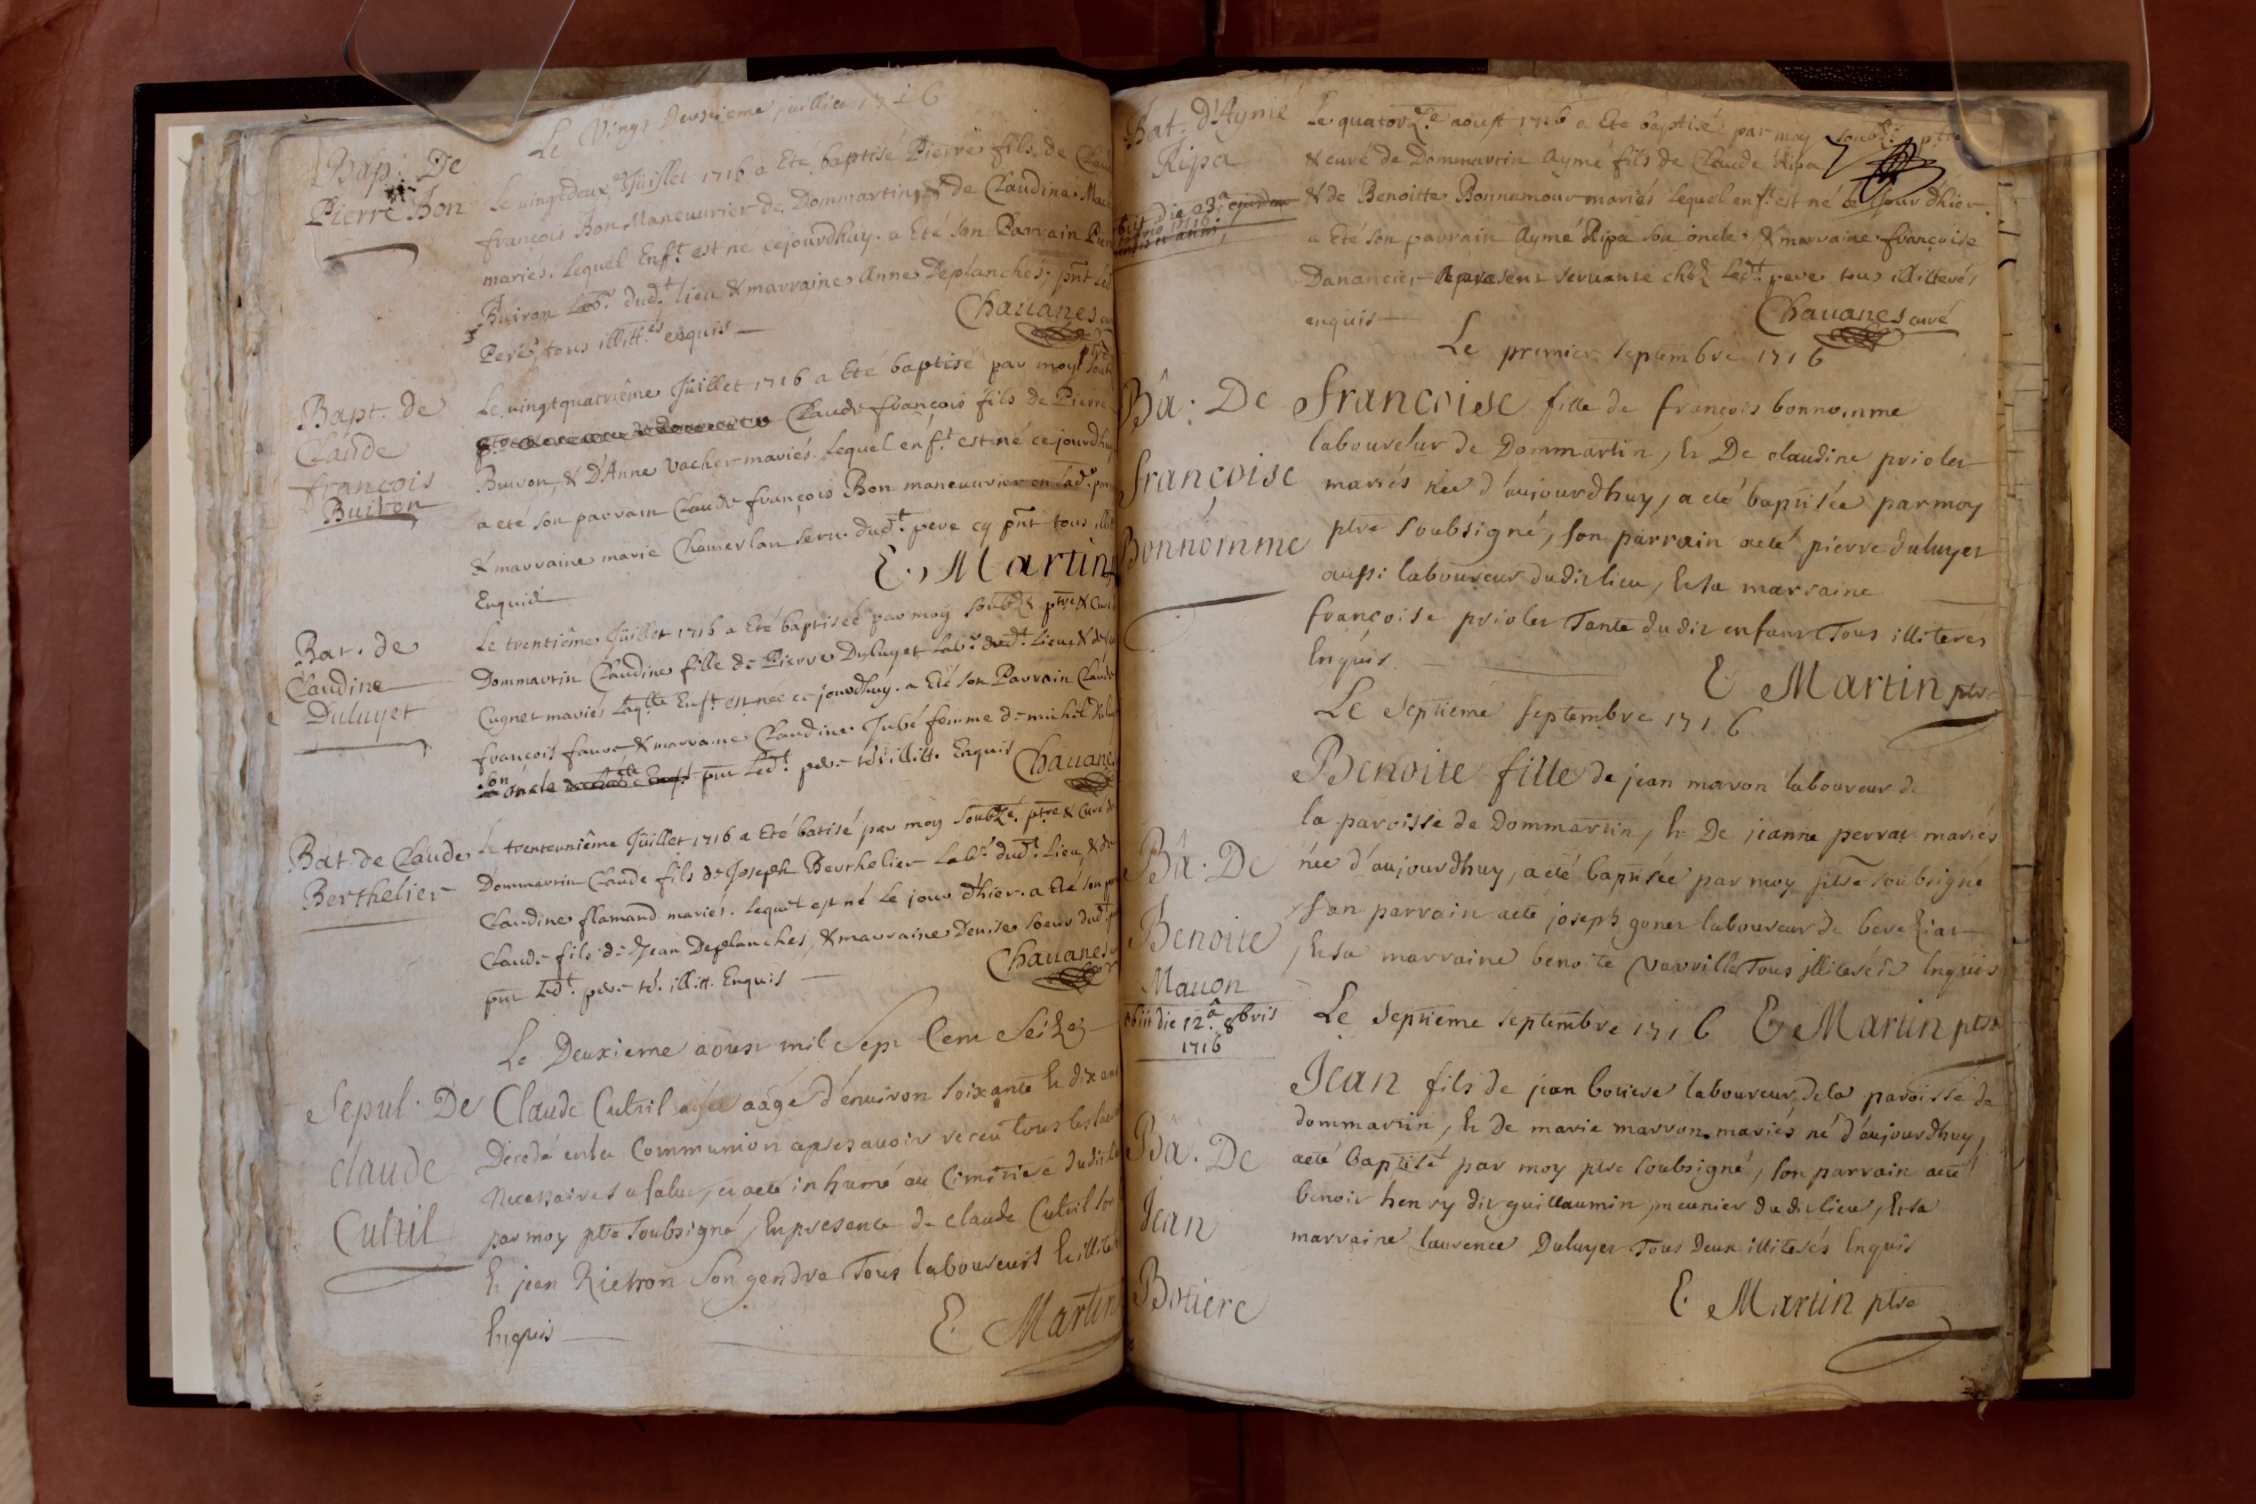 Le Vingt Deuxieme juillet 1716
Bap. De
Pierre Bon
Le vingtdeux.e Jüillet 1716 a Eté baptise Pierre fils de Claude
françois Bon Maneuurier de Dommartin, & de Claudine
mariés. Lequel Enf.t est ne cejourdhuy. a Eté son Parrain
Buiron Lab.r dud.t lieu & marraine Anne Deplanches, pñt Led
Pere, tous illitt.és enquis —
Chauanes
Bapt. de
Claude
françois
Buiron
Le vingtquatrième Jüillet 1716 a Eté baptisé par moy
Claude françois fils de Pierre
Buiron, & D'Anne Vacher mariés. Lequel enf.t est né cejourdhuy
a eté son parrain Claude françois Bon maneuurier en Lad.
& marraine marie Chamerlan seru. dud.t pere cy pñt tous
Enquis —
E. Martin
Bat. de
Claudine
Duluyet
Le trentième Jüillet 1716 a Eté baptisée par moy soubz.é ptre & Curé
Dommartin Claudine fille de Pierre Duluyet Lab.r dud.t Lieu, & de
Cugnet mariés Laq.lle Enf.t est née ce jourdhuy. a Eté son Parrain Claude
françois faure & marraine Claudine Jubé femme de michel
son oncle pñt Led.t pere ts illitt. Enquis Chauanes
Bat. de Claude
Berthelier
Le trenteunième Jüillet 1716 a Eté batisé par moy soubz.é ptre & Curé de
Dommartin Claude fils de Joseph Beurhelier Lab.r dud.t Lieu, & de
Claudine flamand mariés. Lequel est né Le jour d'hier. a Eté son
Claude fils de Jean Deplanches, & marraine Denise soeur dud.
pñt Led.t pere ts. illitt. Enquis —
Chauanes
Le Deuxieme aoust mil Sept Cent Seize
Sepul. De
claude
Cultil
Claude Cultil aagé d'enuiron soixante & dix ans
Décedé en la Communion apres auoir receu tous les
necessaires a salut, et a eté inhumé au Cimitiere dudit
par moy ptre soubsigné, En presence de claude Cultil
& jean Rietton son gendre Tous laboureurs &
Enquis —
E. Martin
Bat. d'Aymé
Ripa
obiit die 23.a ejusdem
anno 1716.
Le quatorz.e aoust 1716 a Eté baptisé par moy soubz.é ptre
& curé de Dommartin Aymé fils de Claude Ripa
& de Benoitte Bonnamour mariés Lequel enf.t est né le jour d'hier.
a Eté son parrain Aymé Ripa son oncle, & marraine françoise
Danancier a present seruante chéz Led.t pere tous illitterés
enquis —
Chauanes curé
Le premier septembre 1716
Bâ. De
françoise
Bonnomme
francoise fille de françois bonnomme
laboureur de Dommartin, & De claudine priolet
mariés née d'aujourdhuy, a eté baptisée par moy
ptre soubsigné, son parrain a eté pierre duluyet
aussi laboureur dudit lieu, & sa marraine
françoise priolet Tante dudit enfant Tous illiterés
Enquis —
E Martin ptre
Le Septieme septembre 1716
Bâ. De
Benoite
Mauon
obiit die 12.â 8bris
1716
Benoite fille de jean maron laboureur de
la paroisse de Dommartin, & De jeanne perrat mariés
née d'aujourdhuy, a eté baptisée par moy ptre soubsigné
son parrain a eté joseph gonet laboureur de
, & sa marraine benoite varville Tous illiterés Enquis
Le Septieme septembre 1716 E Martin ptre
Bâ. De
Jean
Botiere
Jean fils de jean botiere laboureur, de la paroisse de
dommartin, & De marie marron mariés né d'aujourdhuy,
a eté baptisé par moy ptre soubsigné, son parrain a eté
benoit henry dit guillaumin, meunier dudit lieu, & sa
marraine laurence Duluyet Tous deux illiterés Enquis
E. Martin ptre